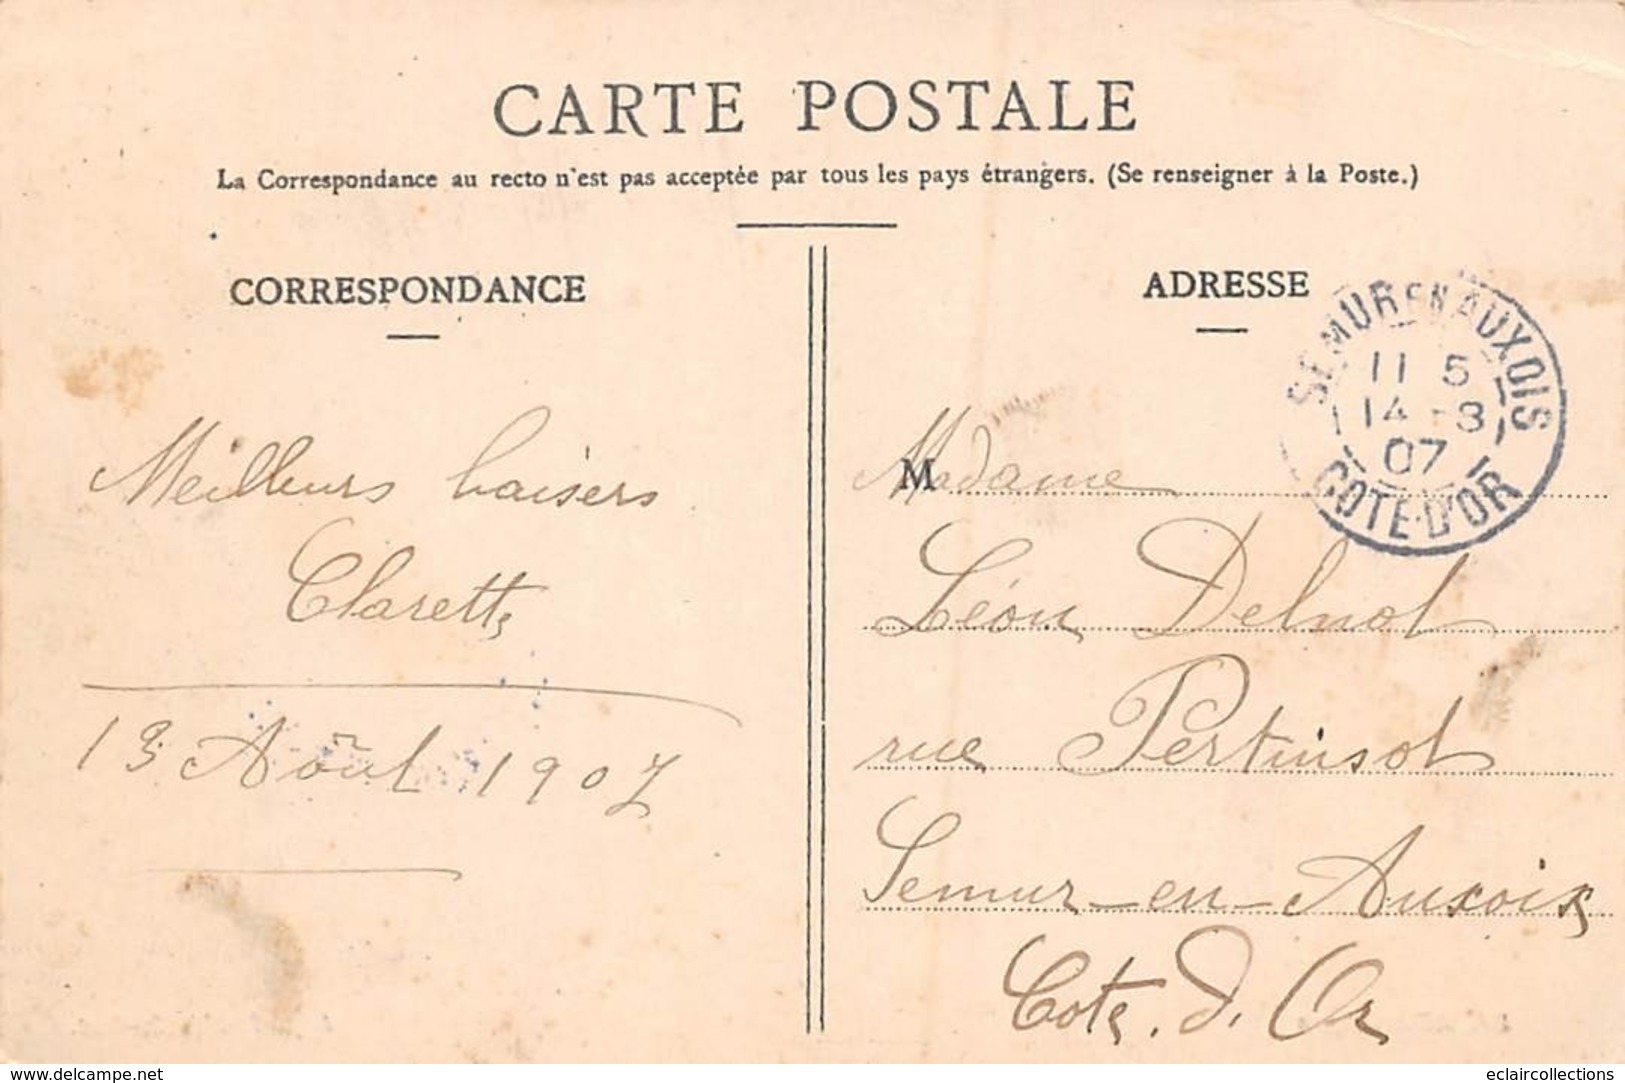 CARTE POSTALE
La Correspondance au recto n'est pas acceptée par tous les pays étrangers. (Se renseigner à la Poste.)
CORRESPONDANCE
Meilleurs baisers
Clarette
13 Août 1907
ADRESSE
SEMUR EN AUXOIS
11 5
14 - 8
07
COTE-D'OR
Madame
Léon Delnot
rue Pertuisot
Semur-en-Auxois
Cote. d. Or
www.delcampe.net
eclaircollections